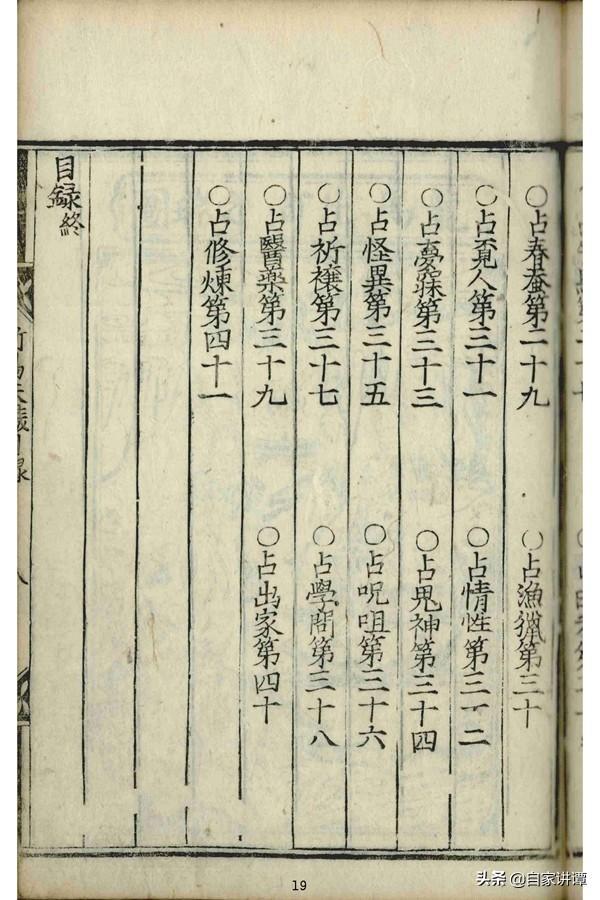 ○占春蚕第二十九
○占漁獵第三十
○占覔人第三十一
○占情性第三十二
○占夢寐第三十三
○占鬼神第三十四
○占怪異第三十五
○占呪咀第三十六
○占祈禳第三十七
○占學問第三十八
○占醫藥第三十九
○占出家第四十
○占修煉第四十一
目録終
八
19
头条 @自家讲谭